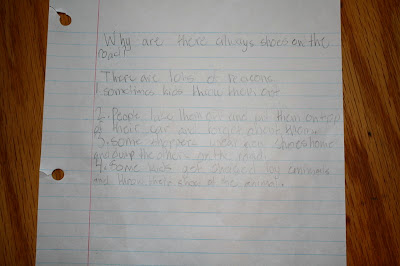 Why are there always shoes on the
road?
There are lots of reasons
1. sometimes kids throw them out
2. People take them off and put them on top
of their car and forget about them.
3. Some shoppers wear new shoes home
and dump the others on the road.
4. Some kids get chased by animals
and throw their shoes at the animals.